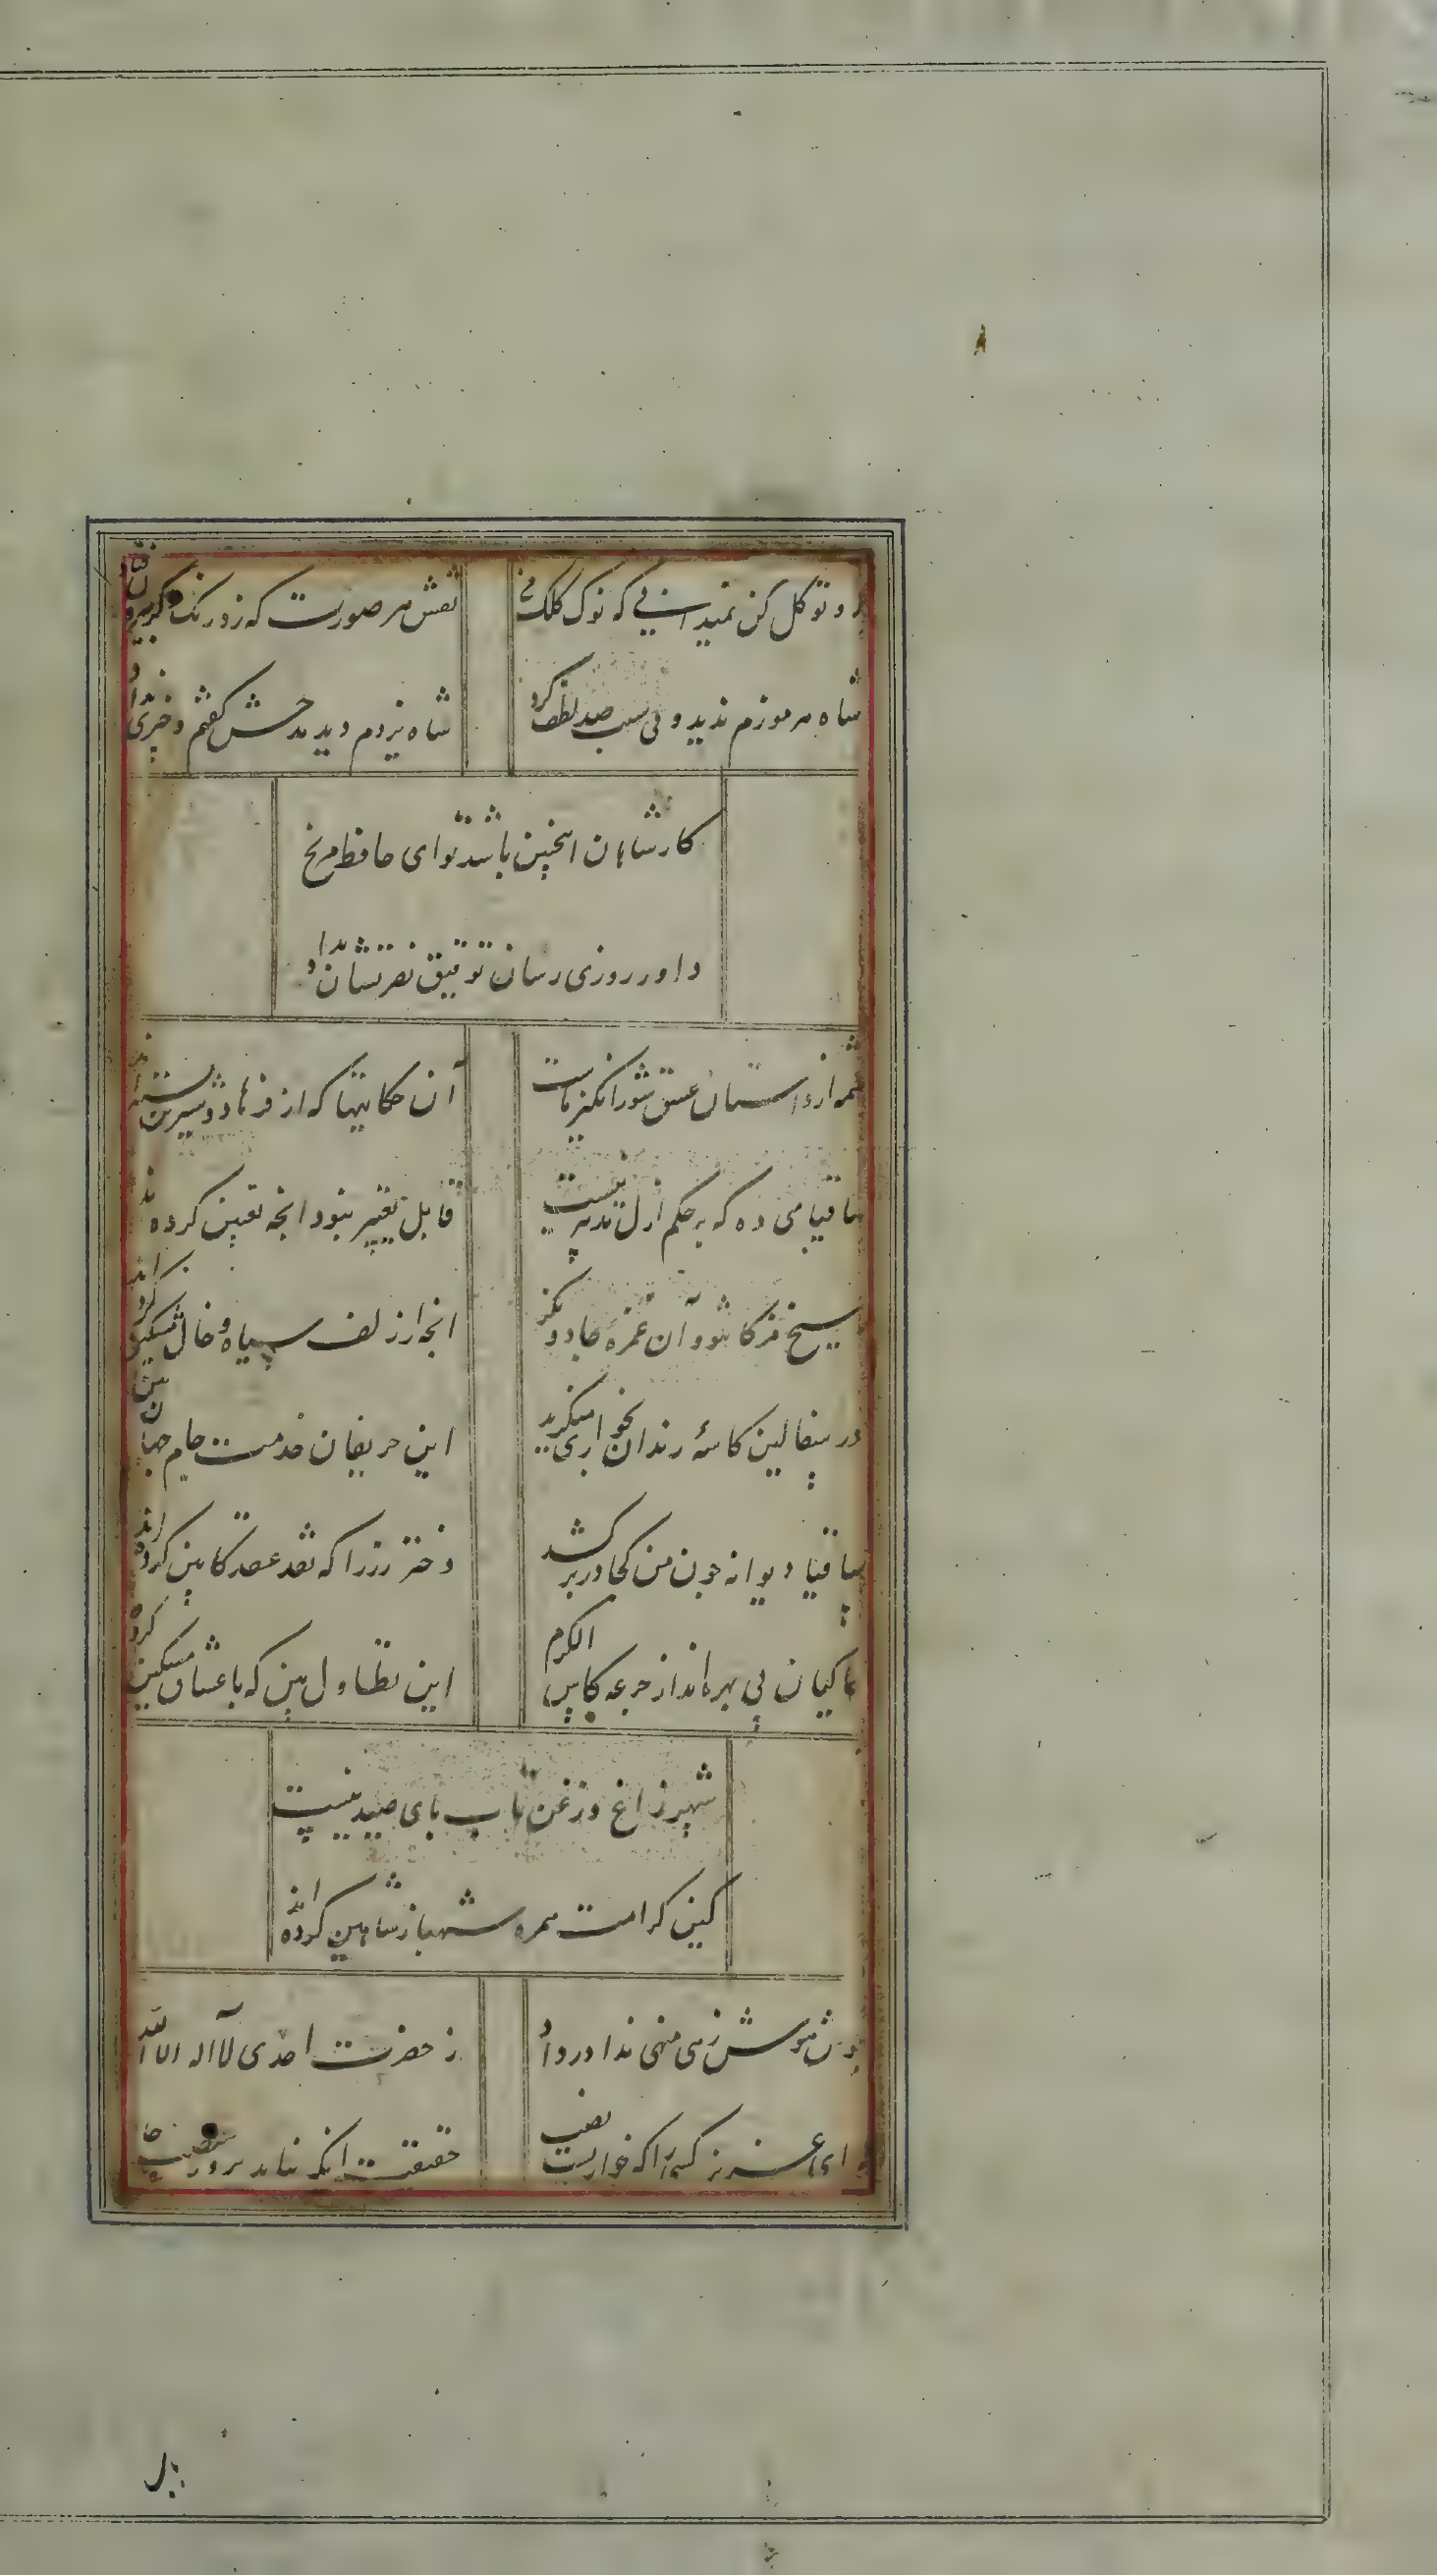 رو توکل کن نمیدانی که نوک کلک من
نقش هر صورت که زد رنگ دگر بیرون فتاد
شاه هرموزم ندید و بی سبب صد لطف کرد
شاه یزدم دید و مدحش گفتم و چیزی نداد
کار شاهان اینچنین باشد تو ای حافظ مرنج
داور روزی رسان توفیق نصرتشان داد
شمه از داستان عشق شورانگیز ماست
آن حکایتها که از فرهاد و شیرین کرده اند
ساقیا می ده که بر حکم ازل تدبیر نیست
قابل تغییر نبود انچه تعیین کرده اند
هیچ مژگان و آن غمزه جادو نکرد
انچه از زلف سیاه و خال مشکین کرده اند
در سفالین کاسهٔ رندان بخواری منگرید
این حریفان خدمت جام جهان بین
ساقیا دیوانه چون من کجا در بر کشد
دختر رزرا که نقد عقد کابین کرده اند
خاکیان بی بهره اند از جرعه کاس الکرم
این تطاول بین که با عشاق مسکین کرده
شهپر زاغ و زغن باب پای صید نیست
کین کرامت همره شهباز شاهین کرده اند
نوش زمی منهی ندا در داد
ز حضرت احدی لااله الا الله
ای عزیز کسی را که خواریست نصیب
حقیقت انکه نیابد بزور منصب جاه
بدل